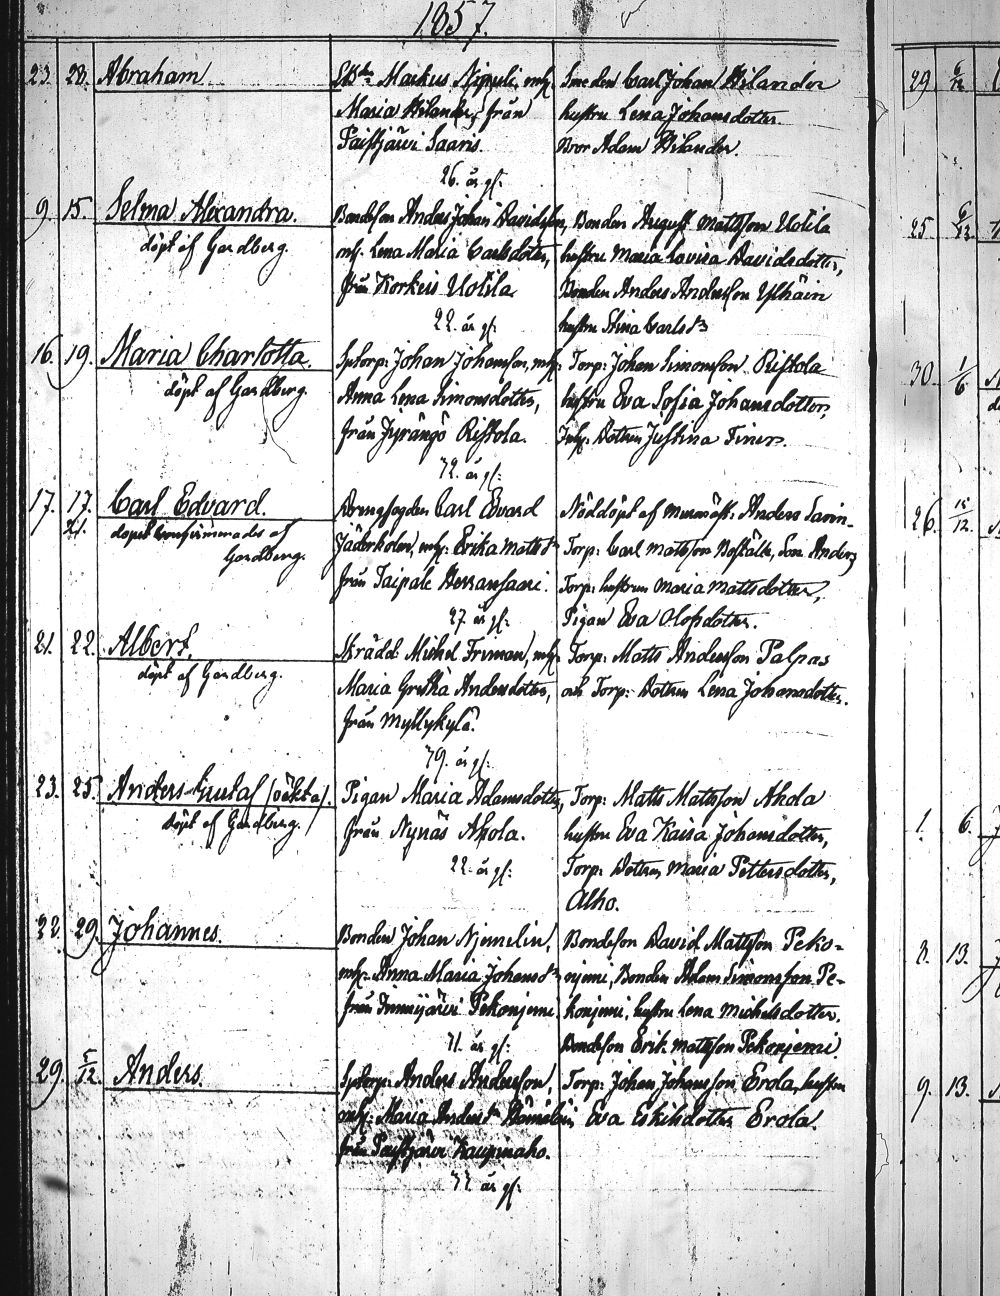 1857.
23. 28. Abraham
Markus Nipuli, mk:
Maria Hilander, från
Paistjärvi Saaris.
26. år gl:
Smeden Carl Johan Hilander
hustru Lena Johansdotter
Bror Adam Hilander.
9. 15. Selma Alexandra.
döpt af Gardberg.
Bondeson Anders Johan Davidsson,
mk: Lena Maria Carlsdotter,
från Korkeis Uotila
22. år gl:
Bonden August Mattsson Uotila
hustru Maria Lovisa Davidsdotter,
Bonden Anders Andersson Ylhäin
hustru Stina Carlsdr
16. 19. Maria Charlotta.
döpt af Gardberg.
Johan Johansson, mk:
Anna Lena Simonsdotter,
från Jyrängö Ristola.
72. år gl:
Torp: Johan Simonsson Ristola
hustru Eva Sofia Johansdotter,
Dottren Justina Finer.
17. 17. Carl Edvard.
21. dopet confirmerades af
Gardberg.
Drengfogden Carl Edvard
Jäderholm, mk: Erika Mattsdr
från Taipale Herransaari.
27 år gl:
Nöddöpt af Anders Savin-
Torp: Carl Mattsson Boställe, Son Anders
Torp: hustrun Maria Mattsdotter,
Pigan Eva Olofsdotter.
21. 22. Albert.
döpt af Gardberg.
Skrädd: Michel Friman, mk:
Maria Gretha Andersdotter,
från Myllykylä.
79. år gl:
Torp: Matts Andersson Palpas
och Torp: Dottren Lena Johansdotter.
23. 25. Anders Gustaf (oäkta).
döpt af Gardberg.
Pigan Maria Adamsdotter,
från Nynäs Ahola.
22. år gl:
Torp: Matts Mattsson Ahola
hustru Eva Kaisa Johansdotter,
Torp: Dottren Maria Pettersdotter,
Alho.
22. 29. Johannes.
Bonden Johan Njemelin,
mk: Anna Maria Johansdr
från Pekonjemi
41. år gl:
Bondeson David Mattsson Peko-
njemi, Bonden Adam Simonsson Pe-
konjemi, hustru Lena Michelsdotter.
Bondeson Erik Mattsson Pekonjemi.
29. 5/12. Anders.
Anders Andersson,
mk: Maria Andersdr
från Paistjärvi
år gl:
Torp: Johan Johansson Erola, hustru
Eva Eskilsdotter Erola.
29 6/12
25. 6/12
30. 1/6
26. 15/12.
1. 6.
8. 13.
9. 13.